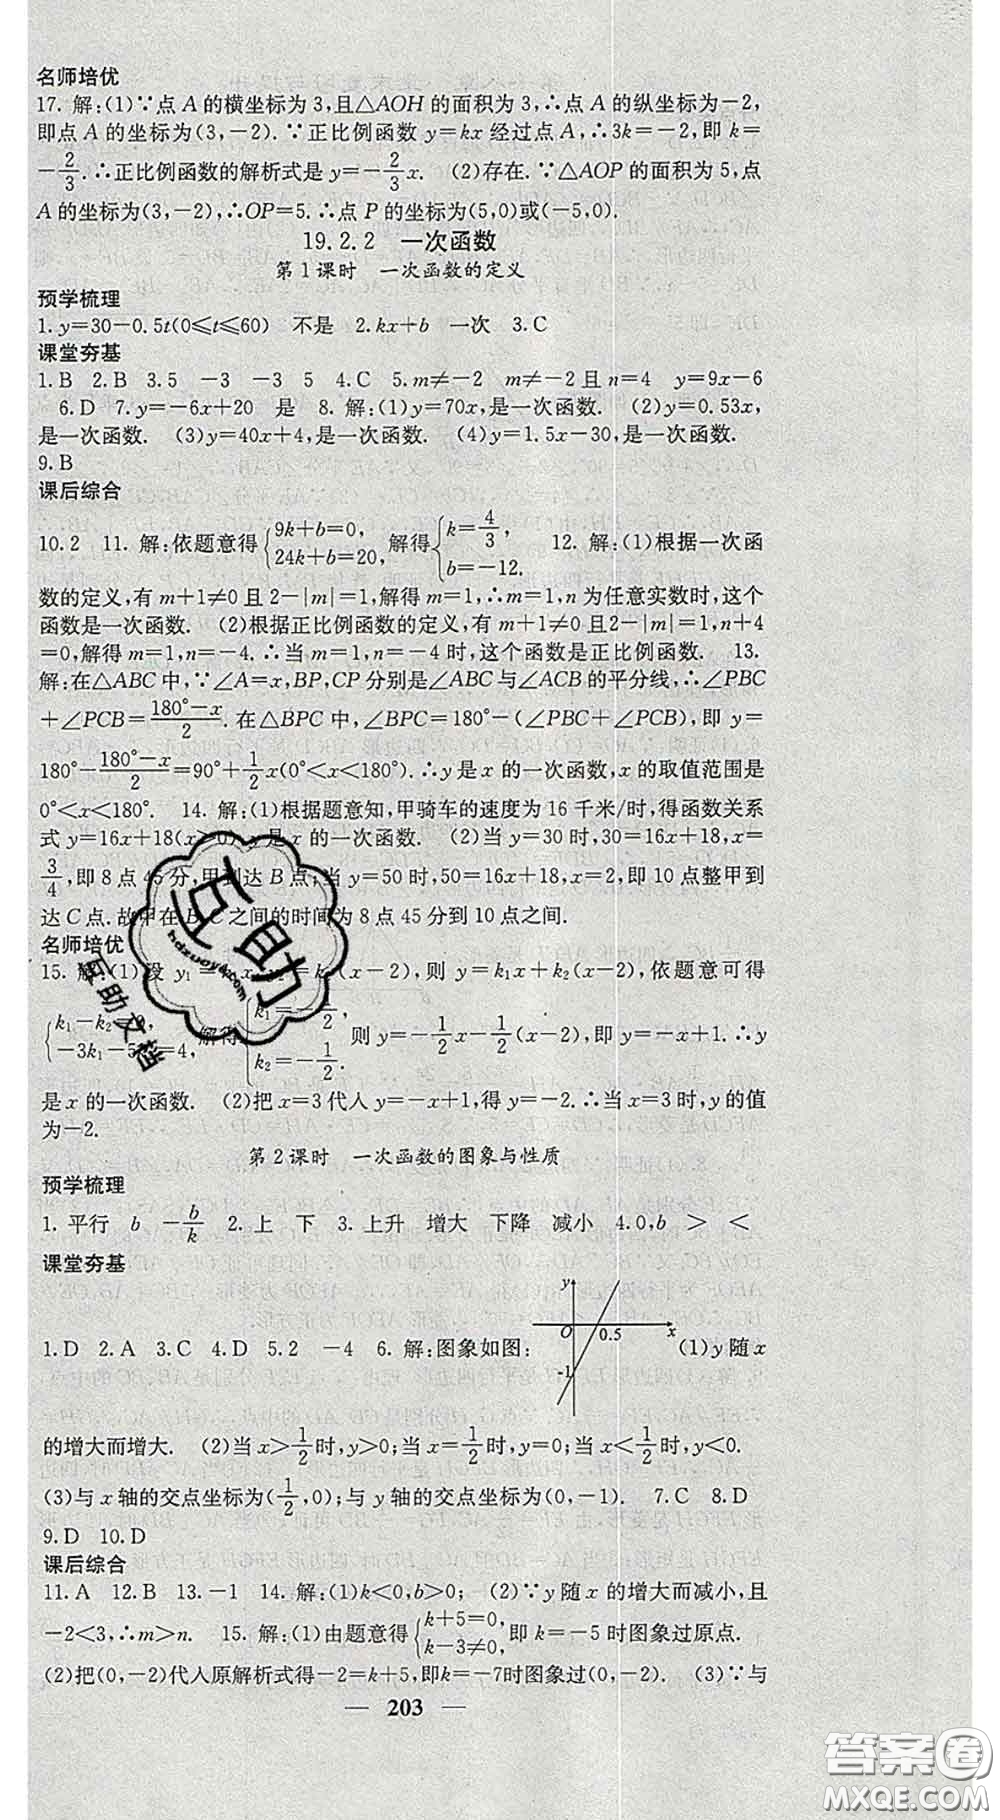 名师培优
17. 解:(1)∵点 A 的横坐标为 3,且△AOH 的面积为 3,∴点 A 的纵坐标为-2,
即点 A 的坐标为(3,-2).∵正比例函数 y=kx 经过点 A,∴3k=-2,即 k=
-2/3.∴正比例函数的解析式是 y=-2/3x. (2)存在.∵△AOP 的面积为 5,点
A 的坐标为(3,-2),∴OP=5.∴点 P 的坐标为(5,0)或(-5,0).
19.2.2 一次函数
第1课时 一次函数的定义
预学梳理
1.y=30-0.5t(0≤t≤60) 不是 2.kx+b 一次 3.C
课堂夯基
1.B 2.B 3.5 -3 -3 5 4.C 5.m≠-2 m≠-2且n=4 y=9x-6
6.D 7.y=-6x+20 是 8. 解:(1)y=70x,是一次函数. (2)y=0.53x,
是一次函数. (3)y=40x+4,是一次函数. (4)y=1.5x-30,是一次函数.
9.B
课后综合
10.2 11. 解:依题意得{9k+b=0, 24k+b=20, 解得{k=4/3, b=-12. 12. 解:(1)根据一次函
数的定义,有 m+1≠0 且 2-|m|=1,解得 m=1,∴m=1,n 为任意实数时,这个
函数是一次函数. (2)根据正比例函数的定义,有 m+1≠0 且2-|m|=1,n+4
=0,解得 m=1,n=-4.∴当 m=1,n=-4 时,这个函数是正比例函数. 13.
解:在△ABC 中,∵∠A=x,BP,CP 分别是∠ABC 与∠ACB 的平分线,∴∠PBC
+∠PCB=(180°-x)/2.在△BPC 中,∠BPC=180°-(∠PBC+∠PCB),即 y=
180°-(180°-x)/2=90°+1/2x(0°<x<180°).∴y是 x 的一次函数,x 的取值范围是
0°<x<180°. 14. 解:(1)根据题意知,甲骑车的速度为 16 千米/时,得函数关系
式 y=16x+18(x≥0),y 是 x 的一次函数. (2)当 y=30 时,30=16x+18,x=
3/4,即 8 点 45 分,甲到达 B 点;当 y=50 时,50=16x+18,x=2,即 10 点整甲到
达 C 点.故甲在 B,C 之间的时间为 8 点 45 分到 10 点之间.
名师培优
15. 解:(1)设 y₁= x,y₂=k₂(x-2),则 y=k₁x+k₂(x-2),依题意可得
{k₁-k₂=0, -3k₁-5k₂=4, 解得{k₁=-1/2, k₂=-1/2. 则 y=-1/2x-1/2(x-2),即 y=-x+1.∴y
是 x 的一次函数. (2)把 x=3代人 y=-x+1,得 y=-2.∴当 x=3时,y的值
为-2.
第2课时 一次函数的图象与性质
预学梳理
1. 平行 b -b/k 2. 上 下 3. 上升 增大 下降 减小 4.0,b > <
课堂夯基
y
O 0.5 x
-1
1.D 2.A 3.C 4.D 5.2 -4 6. 解:图象如图: (1)y 随 x
的增大而增大. (2)当 x>1/2时,y>0;当 x=1/2时,y=0;当 x<1/2时,y<0.
(3)与 x 轴的交点坐标为(1/2,0);与 y 轴的交点坐标为(0,-1). 7.C 8.D
9.D 10.D
课后综合
11.A 12.B 13.-1 14. 解:(1)k<0,b>0; (2)∵y 随 x 的增大而减小,且
-2<3,∴m>n. 15. 解:(1)由题意得{k+5=0, k-3≠0, 即 k=-5 时图象过原点.
(2)把(0,-2)代人原解析式得-2=k+5,即k=-7时图象过(0,-2). (3)∵与
— 203 —
互助
hdzuoye.com
互助文档
答案圈
MXQE.COM